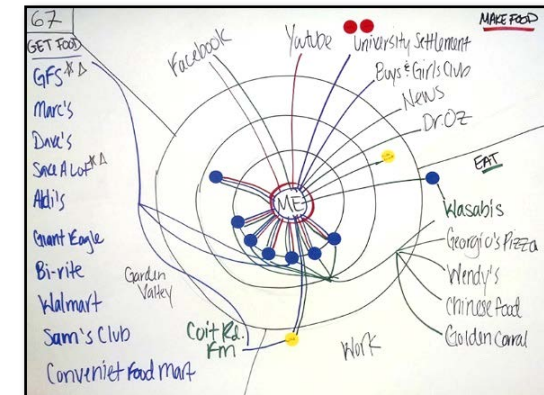 67
MAKE FOOD
GET FOOD
GFS
Marc's
Dave's
Save A Lot
Aldi's
Giant Eagle
Bi-rite
Walmart
Sam's Club
Conveniet Food mart
Facebook
Youtube
University Settlement
Boys & Girls Club
News
Dr. Oz
EAT
Wasabis
Georgio's Pizza
Wendy's
Chinese food
Golden Corral
ME
Garden
Valley
Coit Rd.
Fm
Work